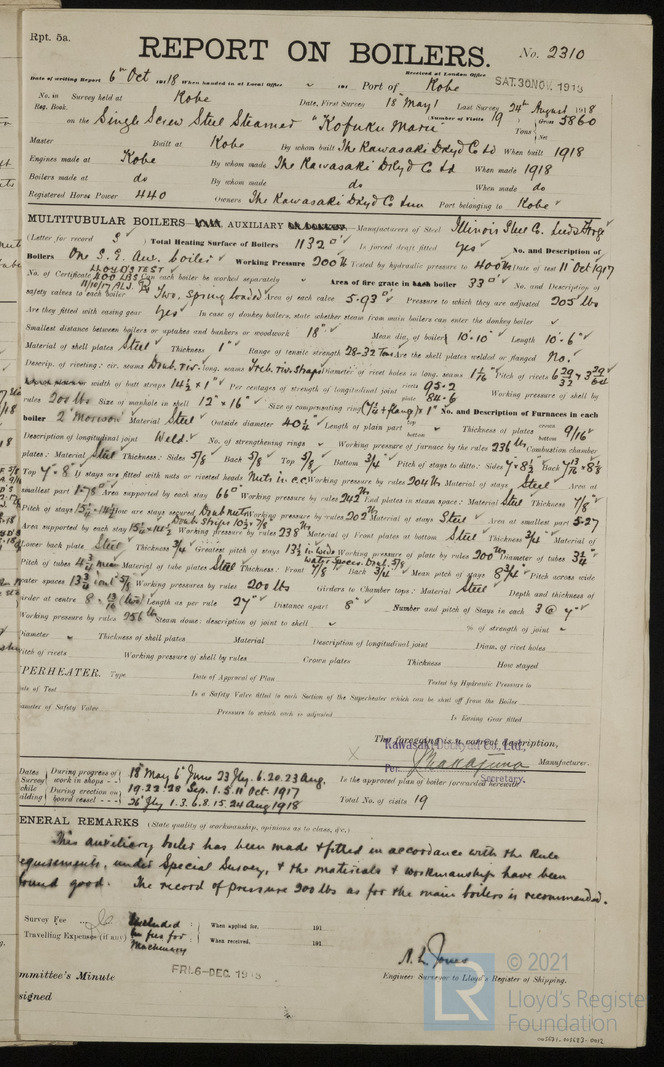 Rpt. 5a.
REPORT ON BOILERS.
No. 2310
Received at London Office
SAT. 30 NOV. 1918
Date of writing Report 6th Oct 1918 When handed in at Local Office 191 Port of Kobe
No. in Survey held at Kobe Date, First Survey 18th May Last Survey 24th August 1918
Reg. Book. (Number of Visits 19
on the Single Screw Steel Steamer "Kofuku Maru" Tons Gross 5860
Net
Master Built at Kobe By whom built The Kawasaki Dkyd Co Ltd When built 1918
Engines made at Kobe By whom made The Kawasaki Dkyd Co Ltd When made 1918
Boilers made at do By whom made do When made do
Registered Horse Power 440 Owners The Kawasaki Dkyd Port belonging to Kobe
MULTITUBULAR BOILERS MAIN AUXILIARY OR DONKEY. Manufacturers of Steel Illinois Steel Co. Leeds Forge
(Letter for record S) Total Heating Surface of Boilers 1132 □' Is forced draft fitted yes No. and Description of
Boilers One S.E. Aux. boiler Working Pressure 200 lb Tested by hydraulic pressure to 400 lb Date of test 11 Oct 1917
LLOYD'S TEST
400 LBS
No. of Certificate Can each boiler be worked separately Area of fire grate in each boiler 33 □' No. and Description of
safety valves to each boiler Two, Spring loaded Area of each valve 5.93 □" Pressure to which they are adjusted 205 lbs
Are they fitted with easing gear Yes In case of donkey boilers, state whether steam from main boilers can enter the donkey boiler
Smallest distance between boilers or uptakes and bunkers or woodwork 18" Mean dia. of boilers 10'-10" Length 10'-6"
Material of shell plates Steel Thickness 1" Range of tensile strength 28-32 Tons Are the shell plates welded or flanged No.
Descrip. of riveting: cir. seams Doub. riv. long. seams Treb. riv. straps Diameter of rivet holes in long. seams 1 1/16 Pitch of rivets
width of butt straps 14 1/2 x 1" Per centages of strength of longitudinal joint rivets 95.2 Working pressure of shell by
plate 84.6
rules 200 lbs Size of manhole in shell 12" x 16" Size of compensating ring (7 1/4 + flang) x 1" No. and Description of Furnaces in each
boiler 2 Morison Material Steel Outside diameter 40 1/4" Length of plain part top Thickness of plates crown 9/16"
bottom bottom
Description of longitudinal joint Weld. No. of strengthening rings Working pressure of furnace by the rules 236 lbs Combustion chamber
plates: Material Steel Thickness: Sides 5/8 Back 5/8 Top 5/8 Bottom 3/4" Pitch of stays to ditto: Sides 7 x 8 1/2 Back
Top 7" x 8" If stays are fitted with nuts or riveted heads Nuts in c.c. Working pressure by rules 204 lb Material of stays Steel Area at
smallest part 1.78 □" Area supported by each stay 66 □" Working pressure by rules 242 lbs End plates in steam space: Material Steel Thickness 7/8"
Pitch of stays How are stays secured Doub nuts Working pressure by rules 202 lbs Material of stays Steel Area at smallest part 5.27
Area supported by each stay Working pressure by rules 238 lbs Material of Front plates at bottom Steel Thickness 3/4" Material of
Lower back plate Steel Thickness 3/4 Greatest pitch of stays Working pressure of plate by rules 200 lb Diameter of tubes 3 1/4
Pitch of tubes 4 3/4 mean Material of tube plates Steel Thickness: Front 7/8 Back 3/4" Mean pitch of stays 8 3/4" Pitch across wide
water spaces Working pressures by rules 200 lbs Girders to Chamber tops: Material Steel Depth and thickness of
girder at centre Length as per rule 27" Distance apart 8" Number and pitch of Stays in each 3 @ 7"
Working pressure by rules 251 lb Steam dome: description of joint to shell % of strength of joint
Diameter Thickness of shell plates Material Description of longitudinal joint Diam. of rivet holes
Pitch of rivets Working pressure of shell by rules Crown plates Thickness How stayed
UPERHEATER. Type Date of Approval of Plan Tested by Hydraulic Pressure to
Date of Test Is a Safety Valve fitted to each Section of the Superheater which can be shut off from the Boiler
Diameter of Safety Valve Pressure to which each is adjusted Is Easing Gear fitted
The foregoing is a correct description,
Kawasaki Dockyard Co., Ltd.
Per Manufacturer.
Secretary.
Dates of Survey while building
During progress of work in shops - - 18th May 6th June 23 Jly. 6. 20. 23 Aug. Is the approved plan of boiler forwarded herewith
19. 22. 28 Sep. 1. 5. 11 Oct. 1917
During erection on board vessel - - - 26 Jly 1. 3. 6. 8. 15. 24 Aug 1918 Total No. of visits 19
GENERAL REMARKS (State quality of workmanship, opinions as to class, &c.)
This auxiliary boiler has been made & fitted in accordance with the Rule
requirements, under Special Survey, & the materials & workmanship have been
found good. The record of pressure 200 lbs as for the main boilers is recommended.
Survey Fee Included When applied for, 191
Travelling Expenses (if any) in fees for Machinery When received, 191
N. L. Jones
Engineer Surveyor to Lloyd's Register of Shipping.
FRI. 6-DEC. 1918
ommittee's Minute
ssigned
© 2021
Lloyd's Register
Foundation
003631-003683-0012